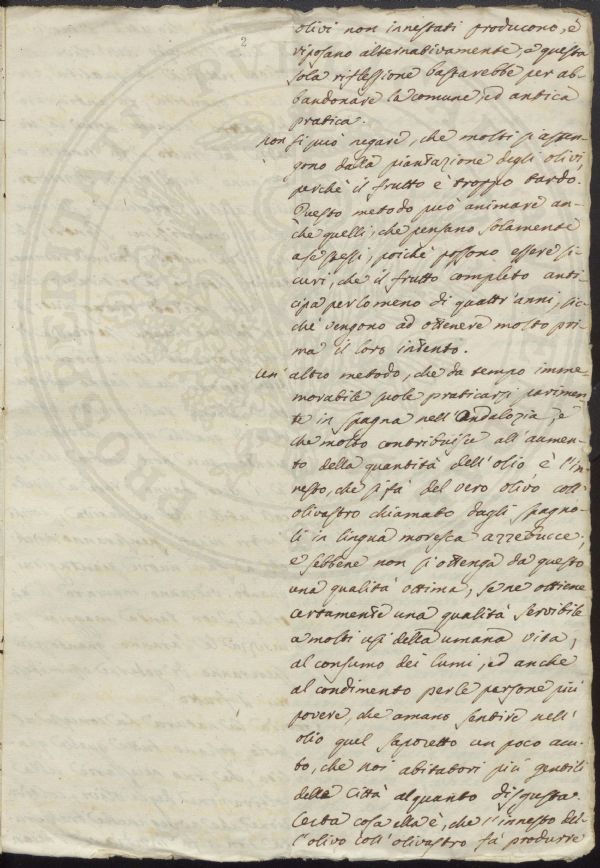 2
olivi non innestati producono, e
riposano alternativamente, e questa
sola riflessione bastarebbe per ab-
bandonare la comune, ed antica
pratica.
non si può negare, che molti si asten-
gono dalla piantazione degli olivi,
perchè il frutto è troppo tardo.
Questo metodo può animare an-
che quelli, che pensano solamente
a se stessi, poichè possono essere si-
curi, che il frutto completo anti-
cipa perlomeno di quattr'anni, sic-
chè vengono ad ottenere molto pri-
ma il loro intento.
un' altro metodo, che da tempo imme
morabile suole praticarsi parimen-
te in spagna nell'Andalozia, e
che molto contribuisce all'aumen-
to della quantità dell'olio è l'in-
nesto, che si fà del vero olivo coll'
olivastro chiamato dagli spagno-
li in lingua moresca azzebucce;
e sebbene non si ottenga da questo
una qualità ottima, se ne ottiene
certamente una qualità servibile
a molti usi della umana vita,
al consumo dei lumi, ed anche
al condimento per le persone più
povere, che amano sentire nell'
olio quel saporetto un poco acu-
to, che noi abitatori più gentili
delle Città alquanto disgusta.
Certa cosa ella è, che l'innesto del-
l'olivo coll'olivastro fà produrre
PROSPERITATI PUBLICAE